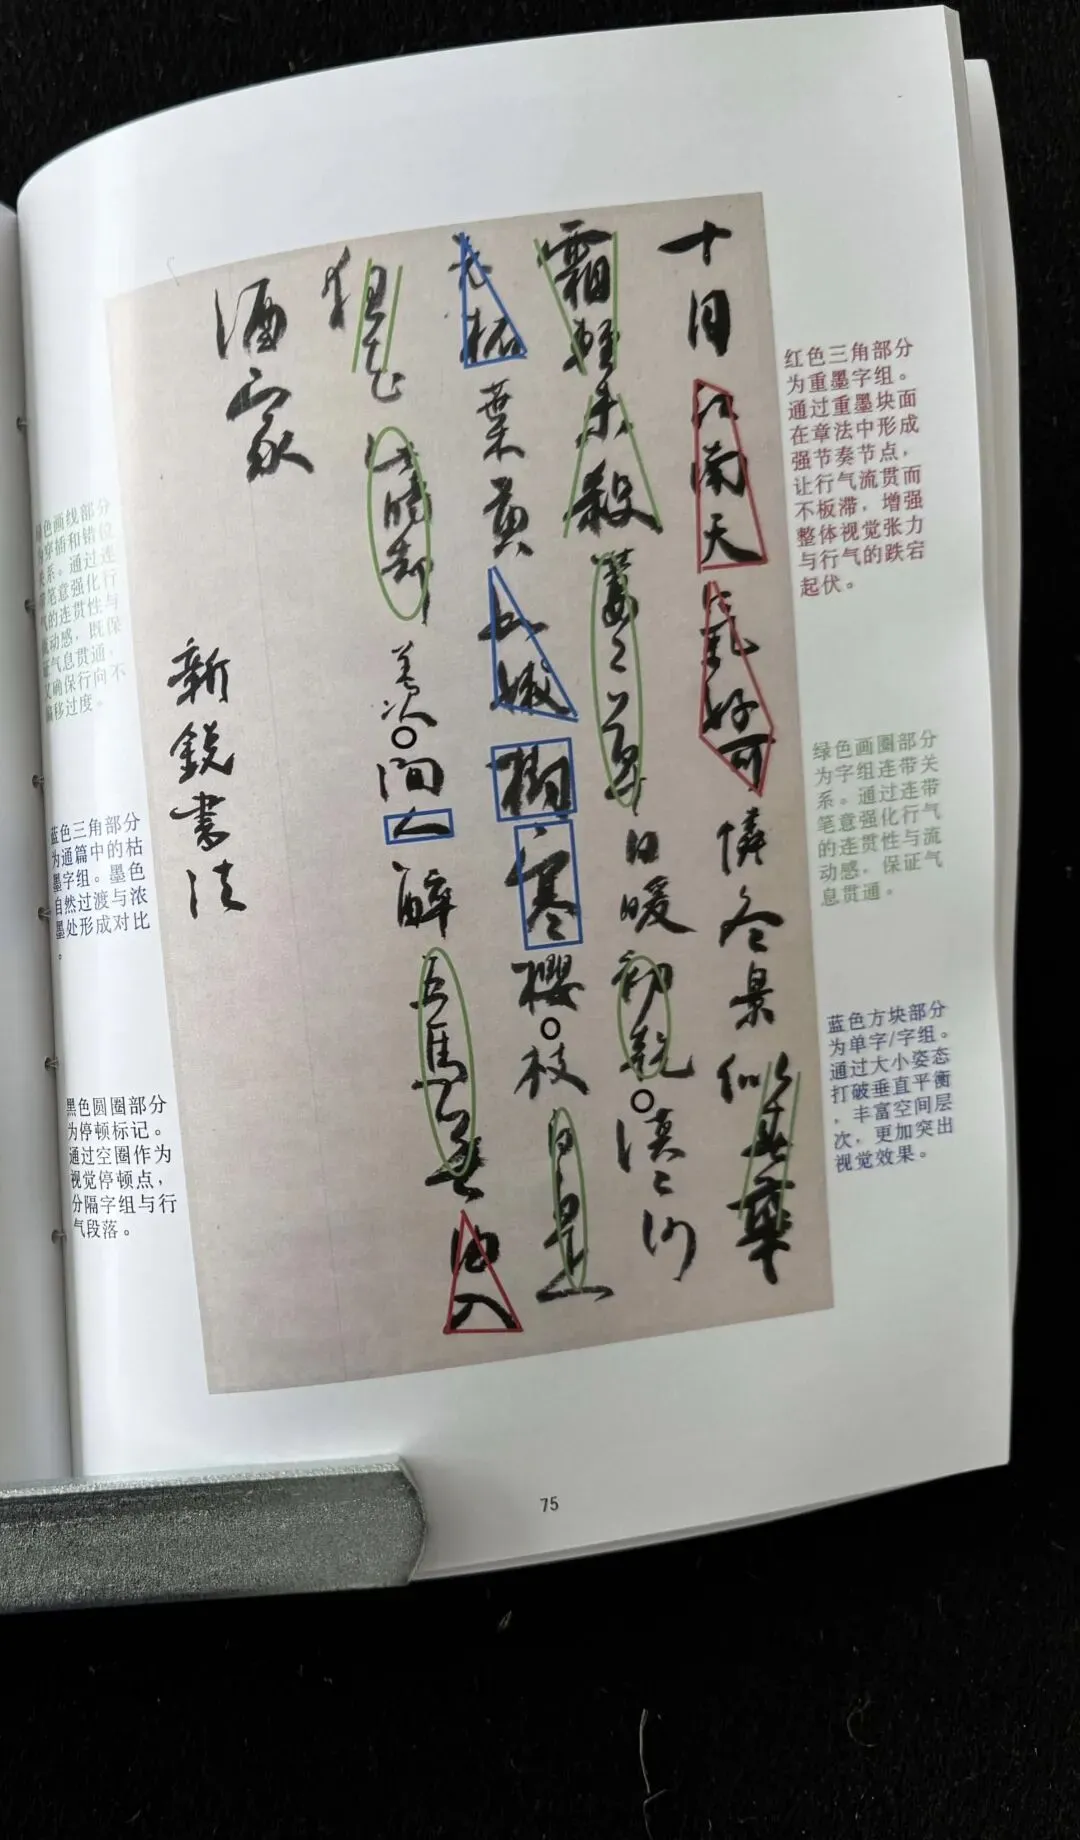 十月江南天氣好可憐冬景似春華
霜輕未殺萋〻草日暖初乾漠〻沙
老柘葉黃如嫩樹寒櫻枝白是
狂花此時却羨間人醉五馬無由入
酒家
新銳書法
红色三角部分
为重墨字组。
通过重墨块面
在章法中形成
强节奏节点，
让行气流贯而
不板滞，增强
整体视觉张力
与行气的跌宕
起伏。
绿色画圈部分
为字组连带关
系。通过连带
笔意强化行气
的连贯性与流
动感，保证气
息贯通。
蓝色方块部分
为单字/字组。
通过大小姿态
打破垂直平衡
，丰富空间层
次，更加突出
视觉效果。
绿色画线部分
为穿插和错位
关系。通过连
带笔意强化行
气的连贯性与
流动感，既保
证气息贯通，
又确保行向不
偏移过度。
蓝色三角部分
为通篇中的枯
墨字组。墨色
自然过渡与浓
墨处形成对比
。
黑色圆圈部分
为停顿标记。
通过空圈作为
视觉停顿点，
分隔字组与行
气段落。
75